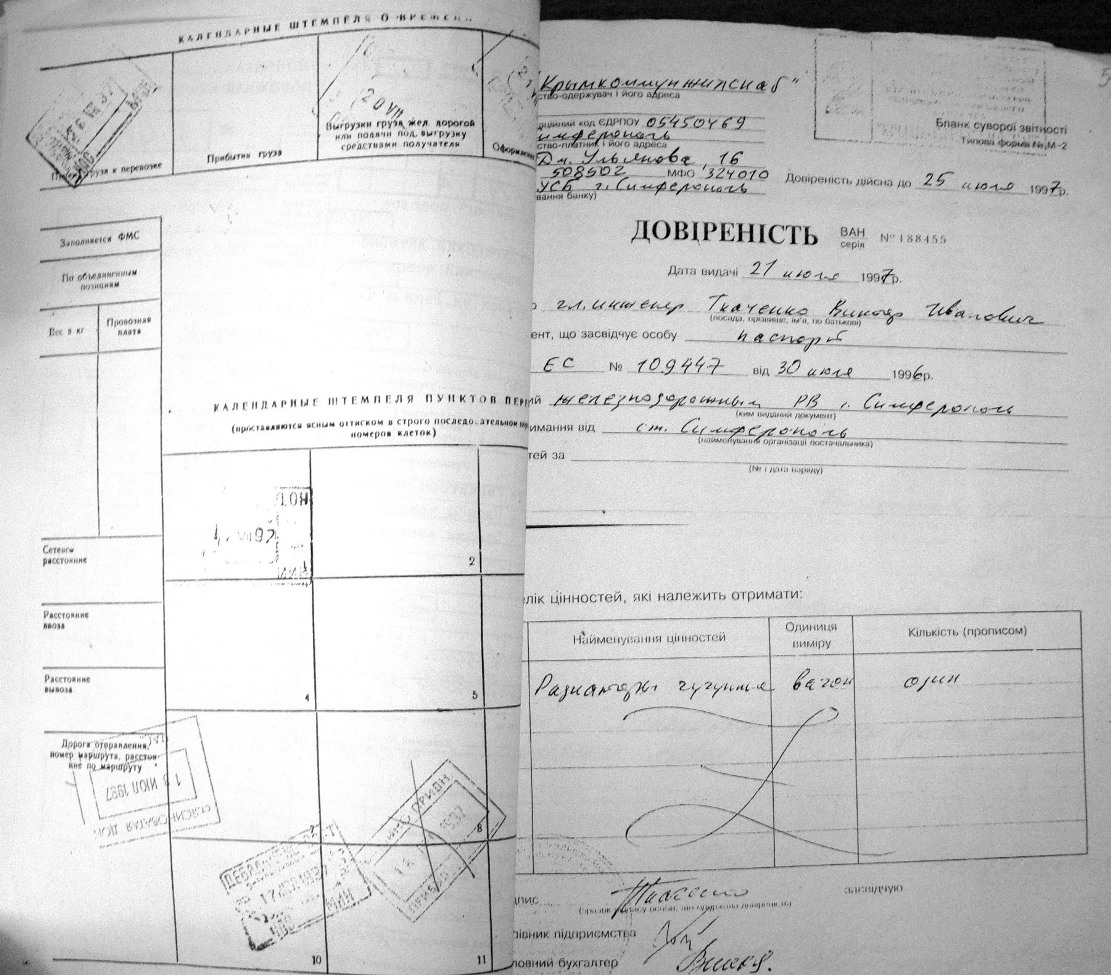 КАЛЕНДАРНЫЕ ШТЕМПЕЛЯ О ВРЕМЕНИ
груза к перевозке
Прибытия груза
20 VII
Выгрузки груза жел. дорогой
или подачи под выгрузку
средствами получателя
Оформлен
Заполняется ФМС
По объединенным
позициям
Вес в кг
Провозная
плата
КАЛЕНДАРНЫЕ ШТЕМПЕЛЯ ПУНКТОВ ПЕРЕ
(проставляются ясным оттиском в строго последовательном
номеров клеток)
2
Сетевое
расстояние
Расстояние
ввоза
4
5
Расстояние
вывоза
Дорога отправления,
номер маршрута, расстоя-
ние по маршруту
18 ИЮЛ 1997
ЯСИНОВАТАЯ ДОН
7
8
10
11
5
"Крымкоммунжипснаб"
ство-одержувач і його адреса
код ЄДРПОУ 05450469
имферополь
ство-платник і його адреса
Дм. Ульянова, 16
508502 МФО 324010
УСБ г. Симферополь
вання банку)
Бланк суворої звітності
Типова форма № М-2
Довіреність дійсна до 25 июля 1997р.
ДОВІРЕНІСТЬ ВАН серія № 188455
Дата видачі 21 июля 1997р.
гл.инженер Ткаченко Виктор Иванович
(посада, прізвище, ім'я, по батькові)
ент, що засвідчує особу паспорт
ЕС № 109447 від 30 июля 1996р.
ий железнодорожным РВ г. Симферополь
(ким виданий документ)
имання від ст. Симферополь
(найменування організації постачальника)
тей за
(№ і дата наряду)
елік цінностей, які належить отримати:
Найменування цінностей
Одиниця
виміру
Кількість (прописом)
Радиаторы чугунные вагон один
дпис
засвідчую
(зразок підпису особи, що одержала довіреність)
рівник підприємства
ловний бухгалтер